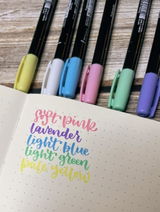 soft pink
lavender
light blue
light green
pale yellow